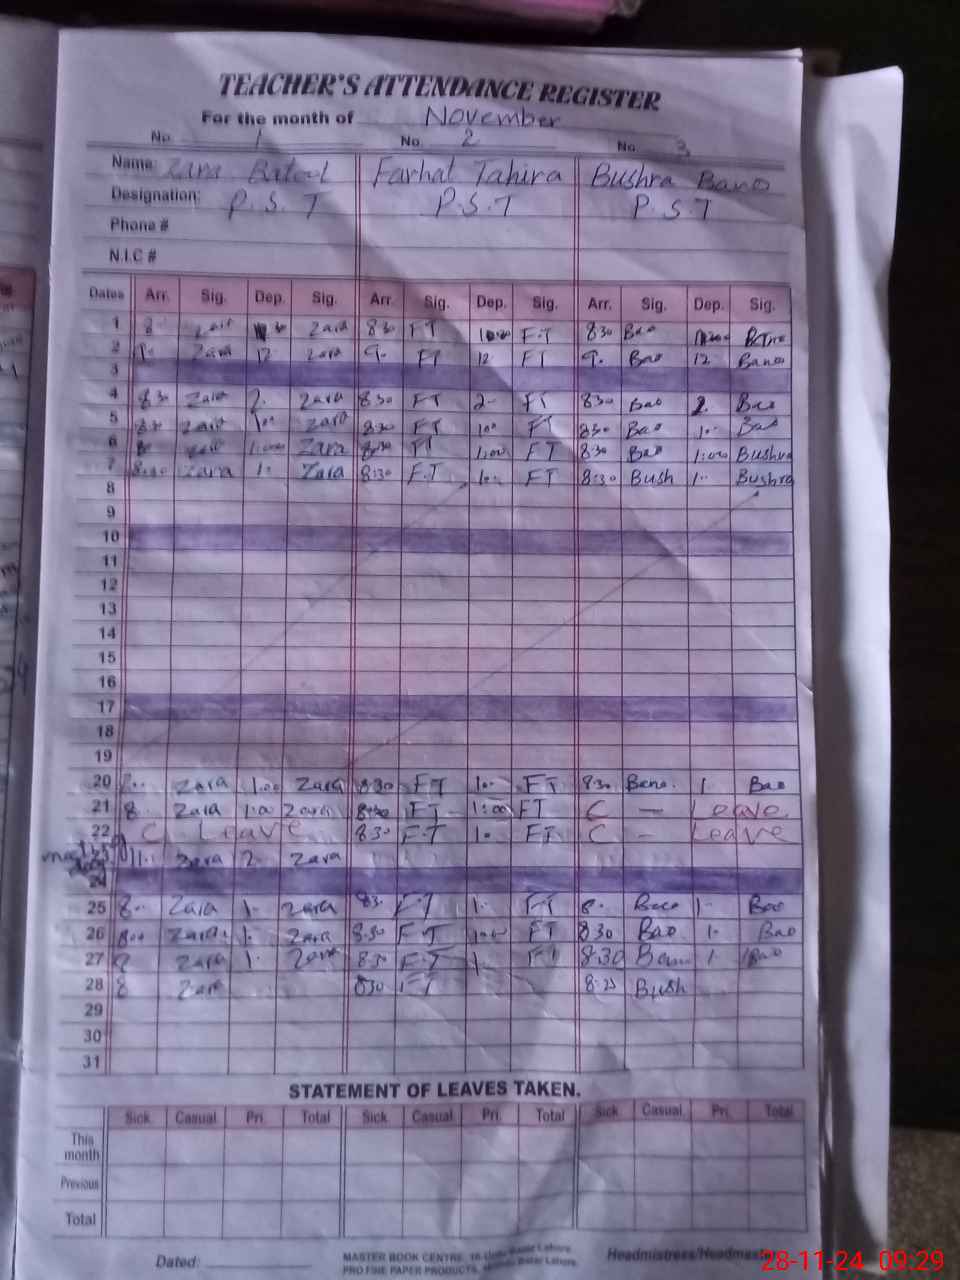 TEACHER'S ATTENDANCE REGISTER
For the month of November
No. 1 No. 2 No. 3
Name: Zara Batool Farhat Tahira Bushra Bano
Designation: P.S.T P.S.T P.S.T
Phone #
N.I.C #
Dates Arr. Sig. Dep. Sig. Arr. Sig. Dep. Sig. Arr. Sig. Dep. Sig.
1 8 Zara 830 FT F.T 830 Bao
2 Zara 12 Zara 9. FT 12 FT 9. Bao 12 Bano
3
4 830 Zara 2. Zara 830 FT 2 FT 830 Bao 2. Bao
5 Zara 1.. Zara 830 FT 1.. FT 830 Bao 1.. Bao
6 1:00 Zara 8:30 FT 1:00 FT 8:30 Bao 1:00 Bushra
7 8:30 Zara 1. Zara 8:30 F.T 1.. FT 8:30 Bush 1.. Bushra
8
9
10
11
12
13
14
15
16
17
18
19
20 Zara 1.00 Zara 830 FT 1.. FT 830 Bano. 1 Bao
21 8. Zara 1:00 Zara FT 1:00 FT C — Leave
22 C Leave 830 F.T 1. FT C — Leave
11. Zara 2. Zara
24
25 8.. Zara 1. Zara 83. FT 1. FT 8. Bao 1. Bao
26 800 Zara. 1. Zara 8.30 FT 1.00 FT 830 Bao 1. Bao
27 8 Zara 1. Zara 830 F.T 1. FT 8:30 Bano 1. Bao
28 8 Zara 830 FT Bush
29
30
31
STATEMENT OF LEAVES TAKEN.
Sick Casual Pri. Total Sick Casual Pri. Total Sick Casual Pri. Total
This
month
Previous
Total
Dated: MASTER BOOK CENTRE, Urdu Bazar Lahore. Headmistress/Headmaster
PRO FINE PAPER PRODUCTS, Bazar Lahore.
28-11-24 09:29